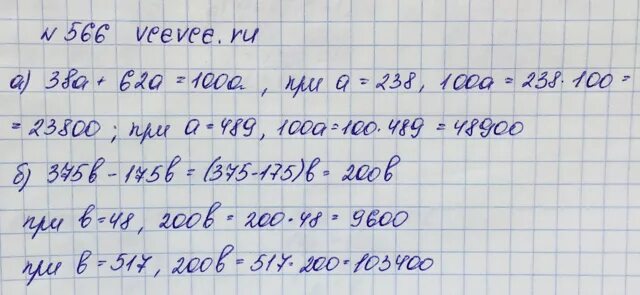 № 566 veevee.ru
а) 38а + 62а = 100а, при а = 238, 100а = 238·100 =
= 23800; при а = 489, 100а = 100·489 = 48900
б) 375в - 175в = (375-175)в = 200в
при в = 48, 200в = 200·48 = 9600
при в = 517, 200в = 517·200 = 103400